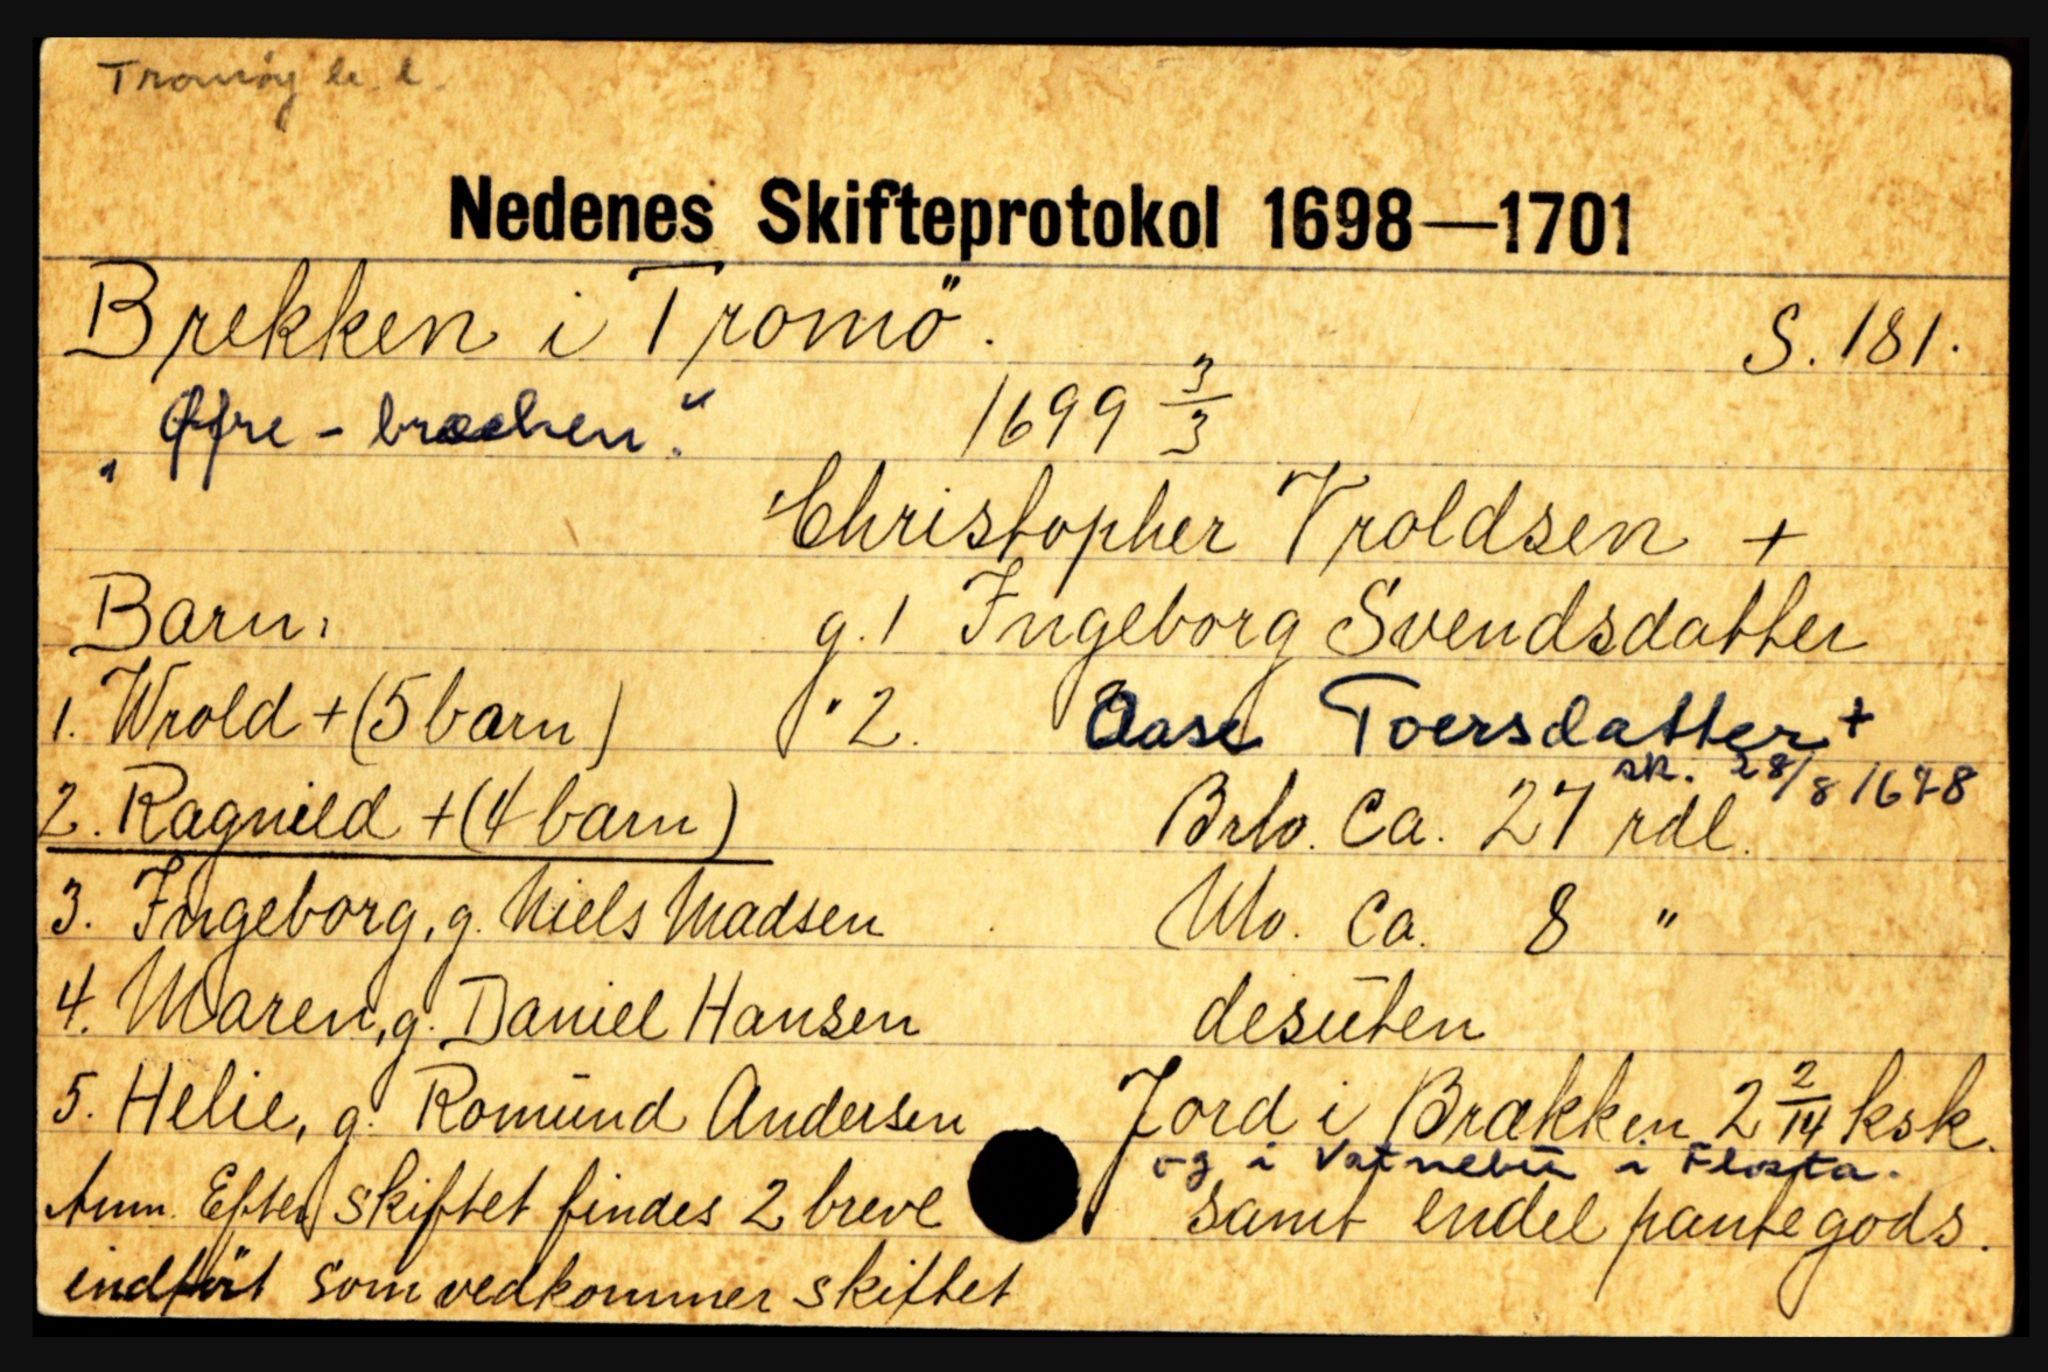 Tromöy
Nedenes Skifteprotokol 1698—1701
Brekken i Tromö.
S. 181.
„Øfre - bræchen."
1699 3/3
Christopher Vroldsen +
Barn:
g. 1 Ingeborg Svendsdatter
1. Wrold + (5 barn)
" 2. Aase Toersdatter +
sk. 28/8 1678
2. Ragnild + (4 barn)
Brto. Ca. 27 rdl.
3. Ingeborg, g. Niels Madsen
Nto. Ca. 8 "
4. Maren, g. Daniel Hansen
desuten
5. Helie, g. Romund Andersen
Jord i Brækken 2 2/14 ksk.
og i Vatnebu i Flosta.
Anm. Efter skiftet findes 2 breve
samt endel pantegods.
indført som vedkommer skiftet